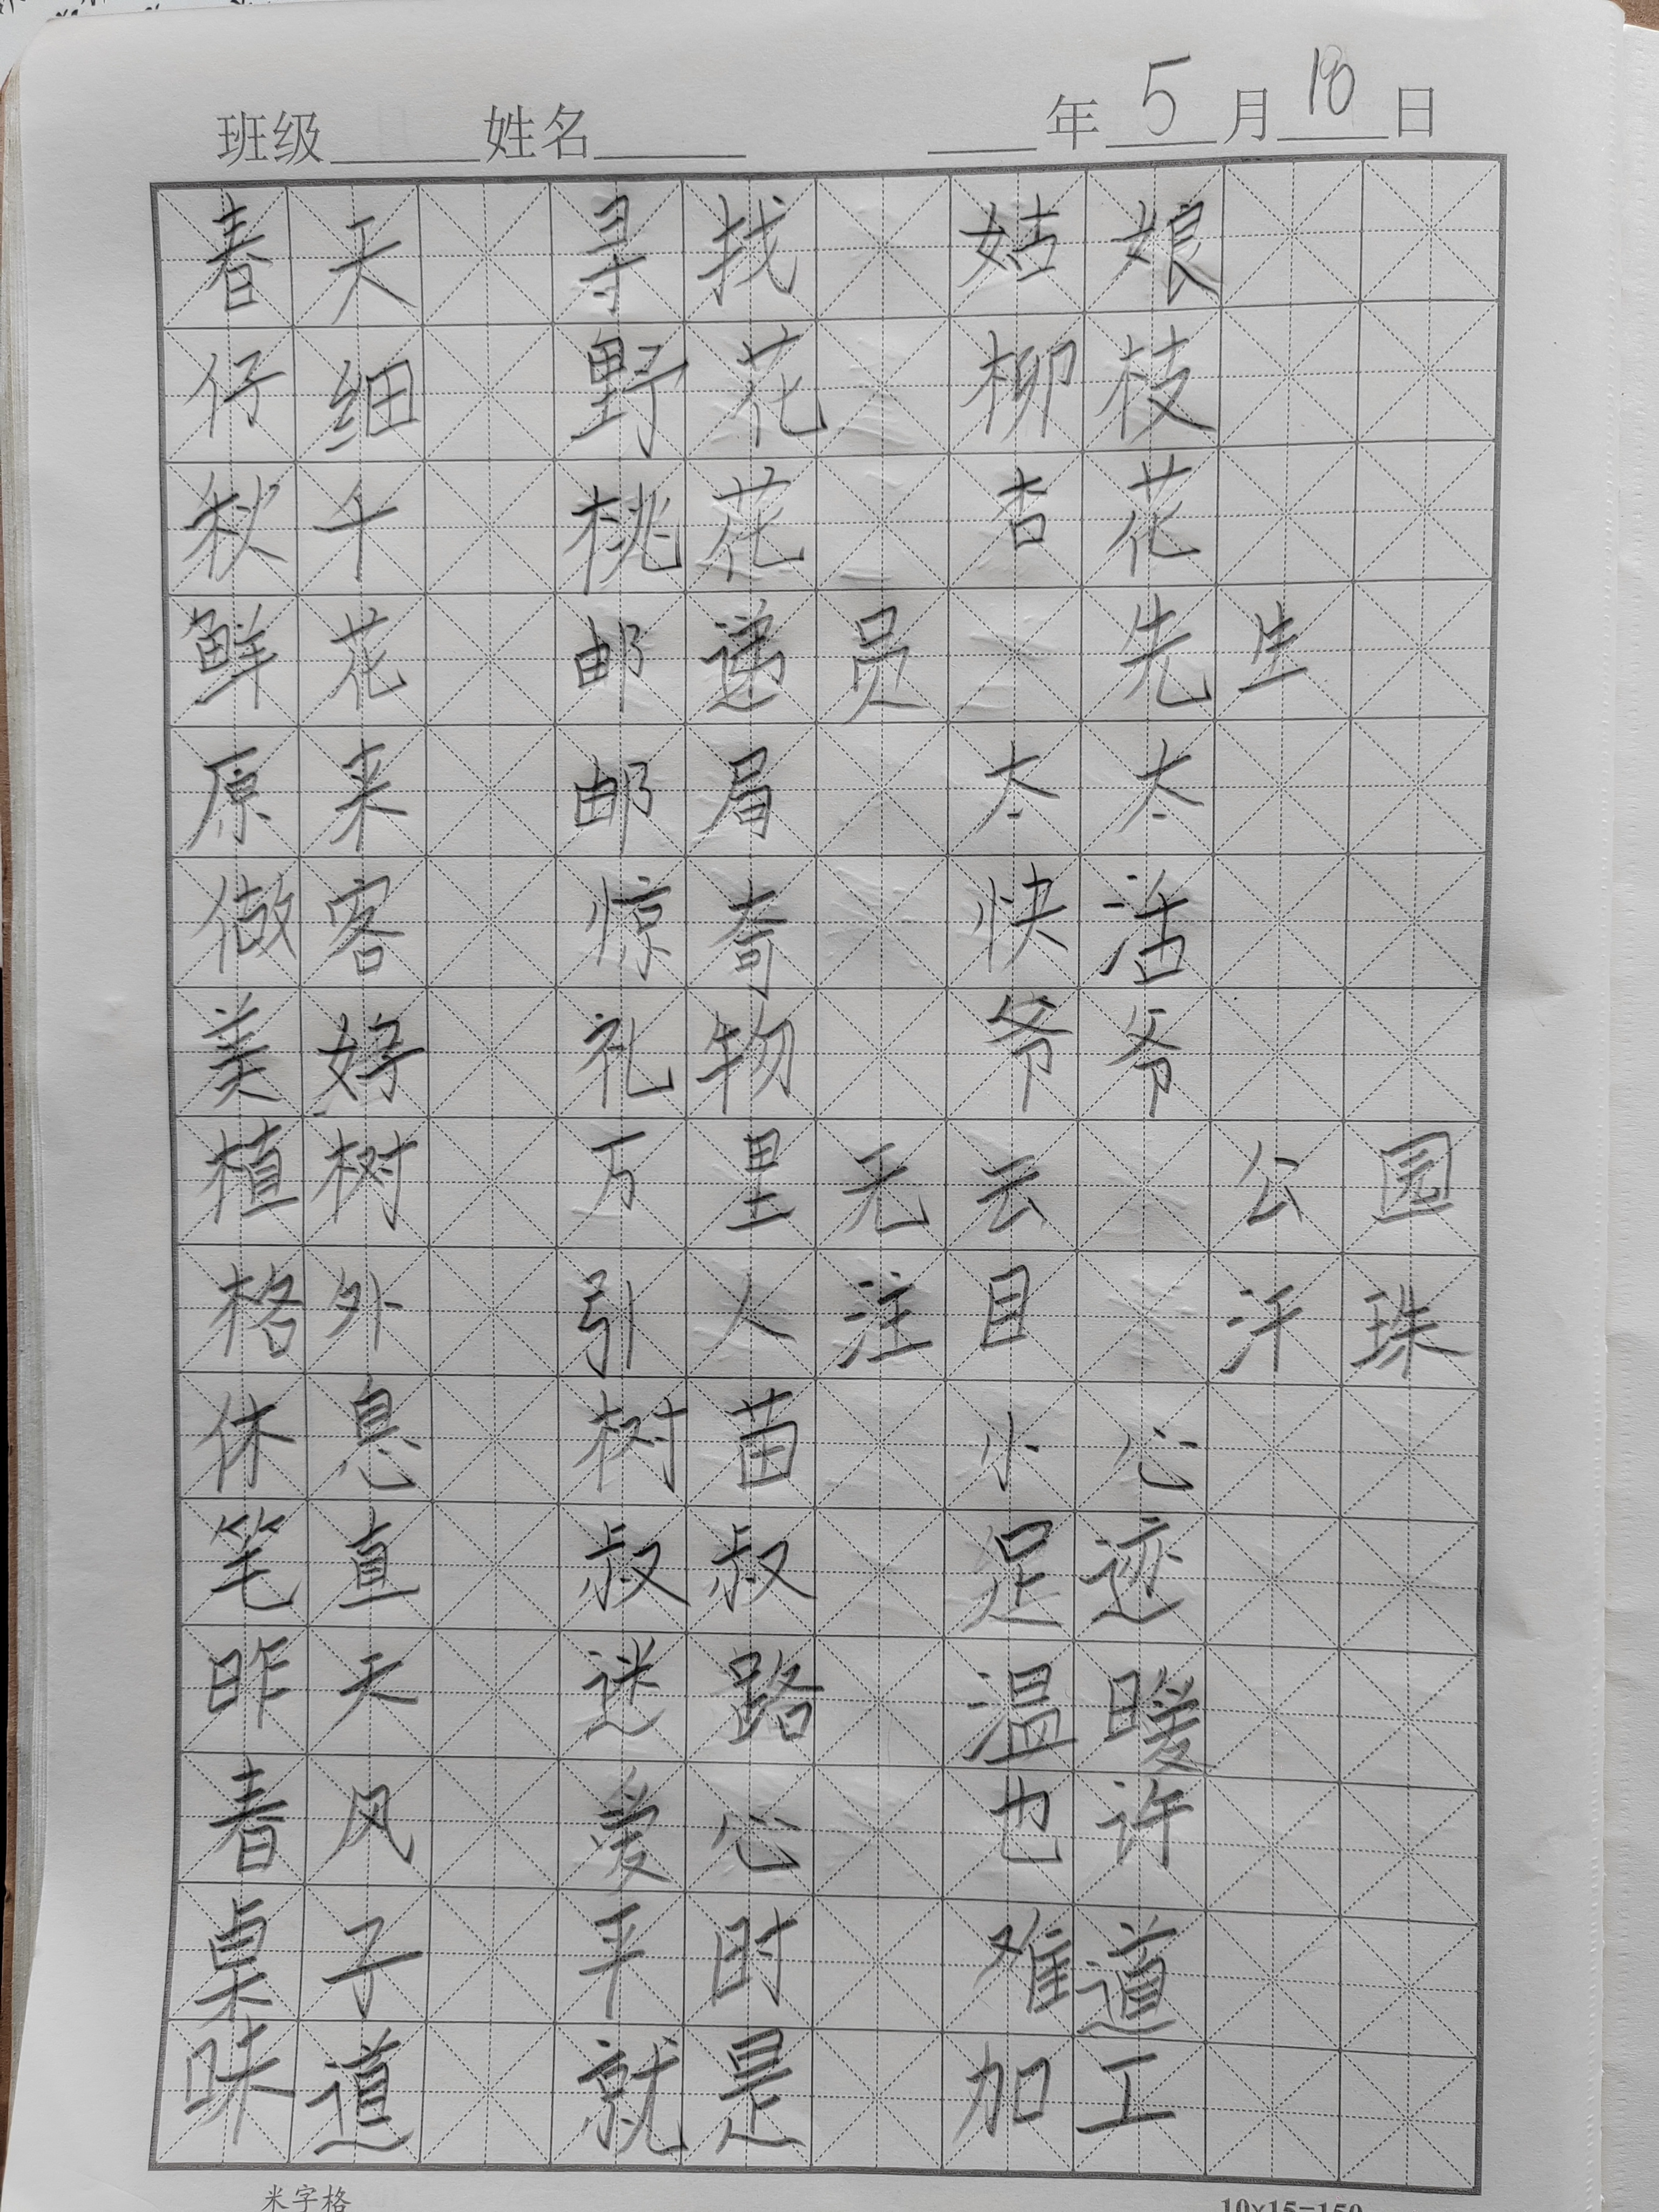 班级 姓名 年 5 月 18 日
春天 寻找 姑娘
仔细 野花 柳枝
秋千 桃花 杏花
鲜花 邮递员 先生
原来 邮局 太太
做客 惊奇 快活
美好 礼物 爷爷
植树 万里无云 公园
格外 引人注目 汗珠
休息 树苗 小心
笔直 叔叔 足迹
昨天 迷路 温暖
春风 爱心 也许
桌子 平时 难道
味道 就是 加工
米字格 10×15=150